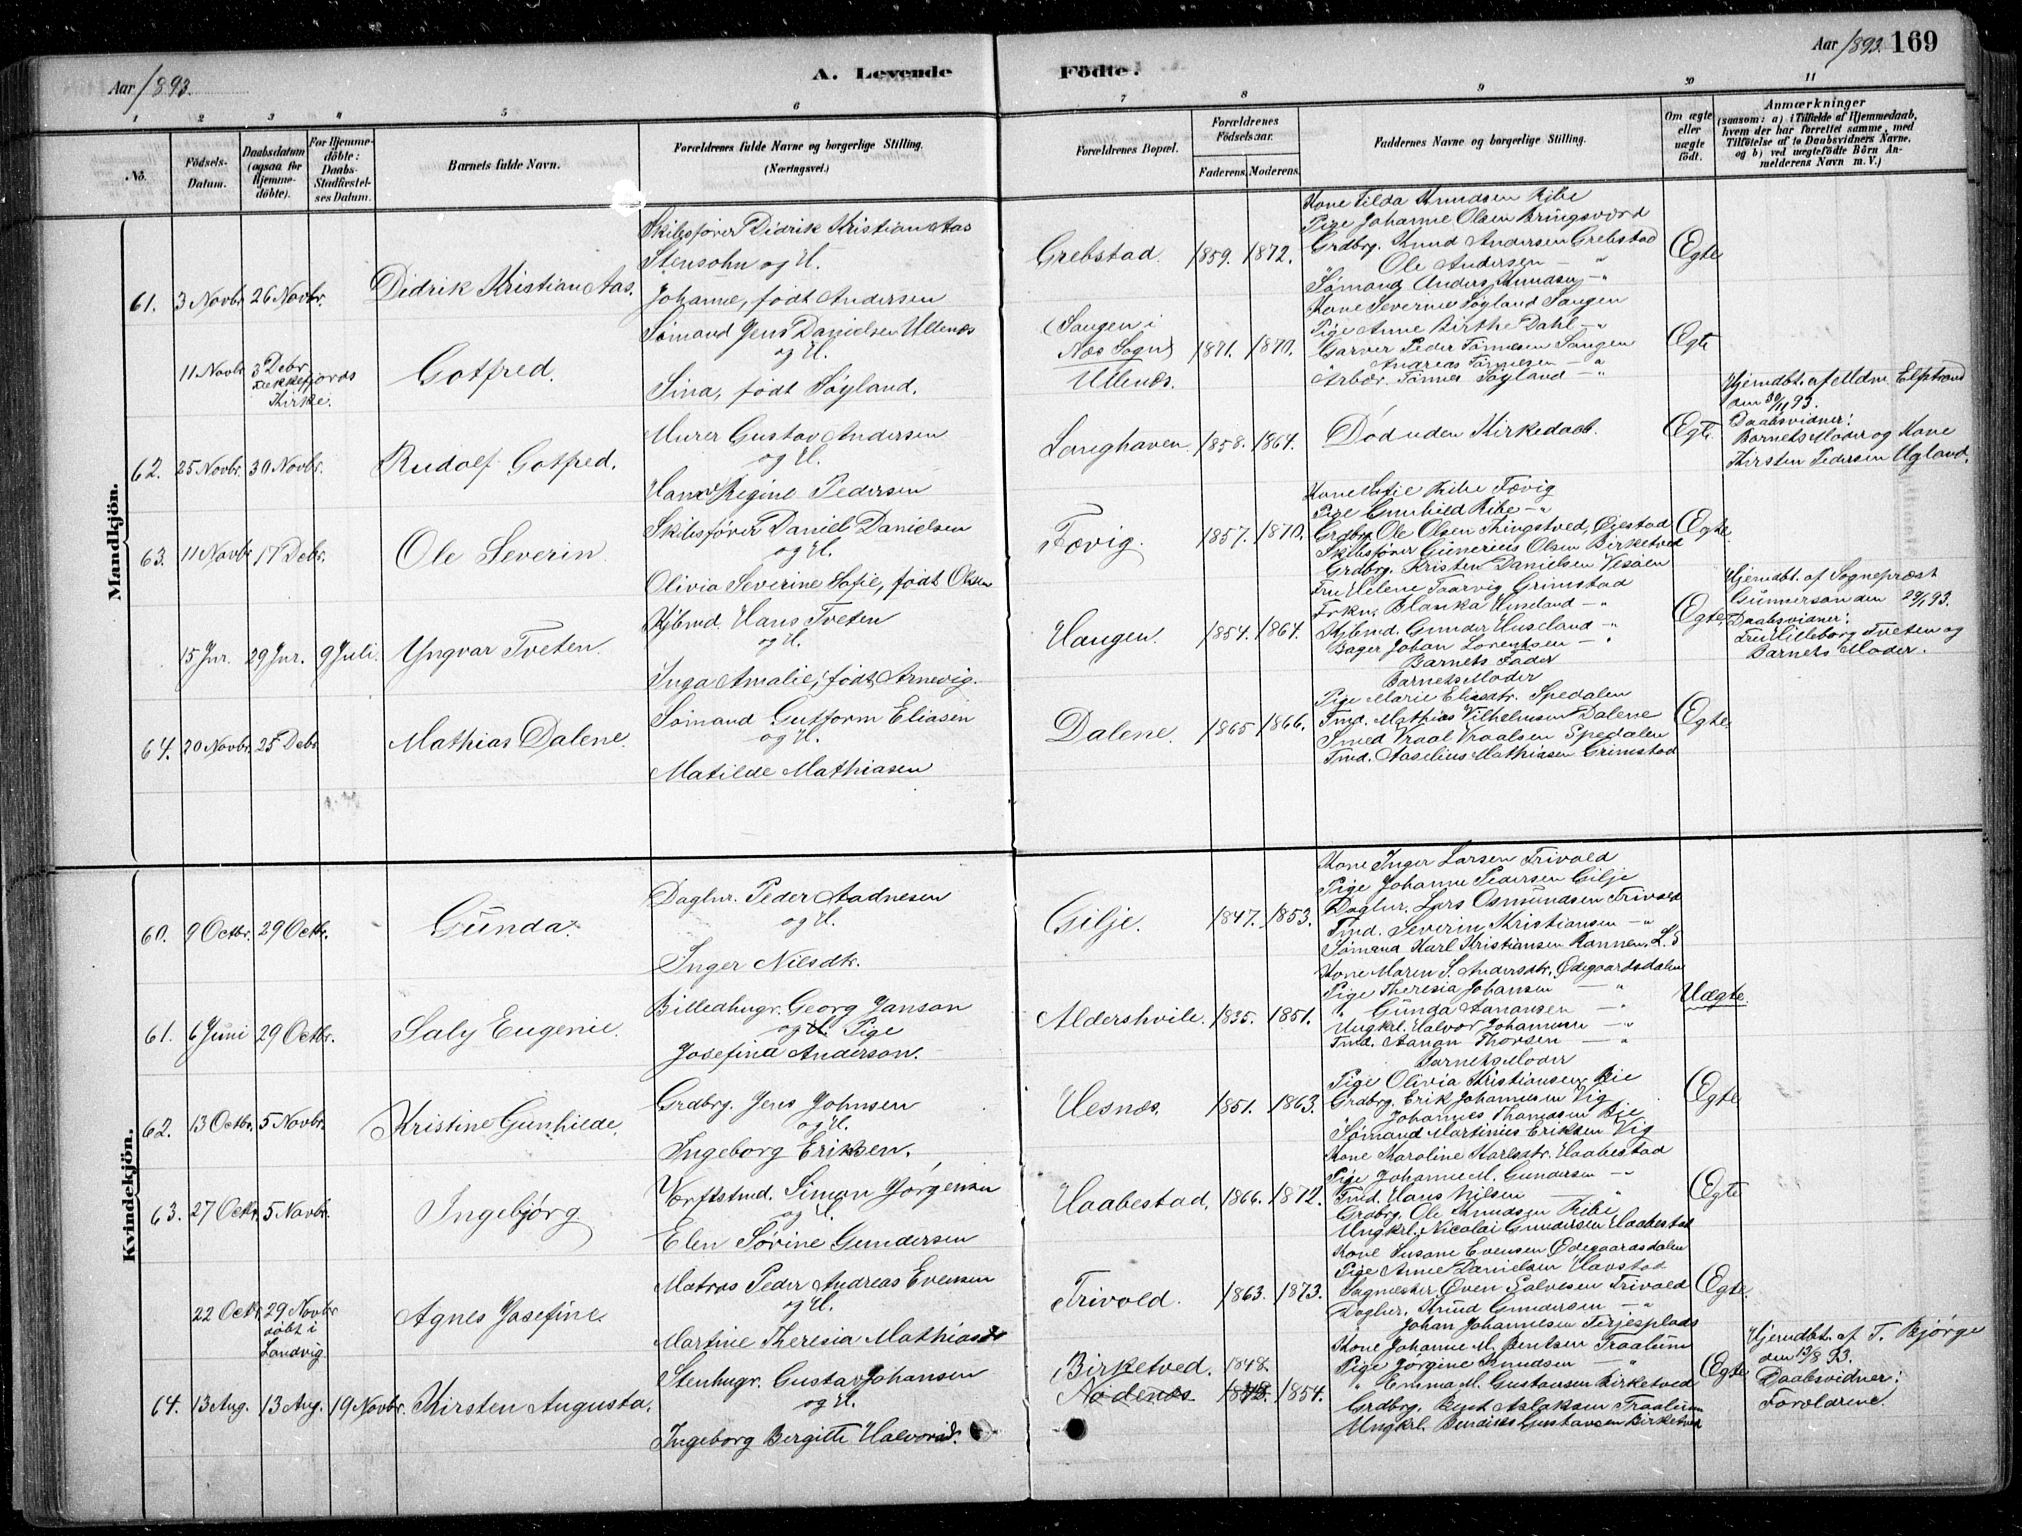 Aar 1893.
A. Levende Födte.
Aar 1893. 169
1 2 3 4 5 6 7 8 9 10 11
No.
Födsels-
Datum.
Daabsdatum
(ogsaa for
Hjemme-
döbte).
For Hjemme-
döbte:
Daabs-
Stadfæstel-
ses Datum.
Barnets fulde Navn.
Forældrenes fulde Navne og borgerlige Stilling.
(Næringsvei.)
Forældrenes Bopæl.
Forældrenes
Födselsaar.
Faderens. Moderens.
Faddernes Navne og borgerlige Stilling.
Om ægte
eller
uægte
födt.
Anmærkninger
(saasom: a) i Tilfælde af Hjemmedaab,
hvem der har forrettet samme, med
Tilföielse af to Daabsvidners Navne,
og b) ved uægtefödte Börn An-
melderens Navn m. V.)
Mandkjön.
61. 3 Novbr. 26 Novbr. Didrik Kristian Aas.
Skibsfører Didrik Kristian Aas
Stensohn og H.
Johanne, født Andersen
Grebstad. 1859. 1872.
Kone Tilda Knudsen Ribe
Pige Johanne Olsen Bringsværd
Grdbrg. Knud Andersen Grebstad
Ole Andersen — "
Sømand Anders Knudsen — "
Egte
11 Novbr. 3 Debr.
Flekkefjords
Kirke.
Gotfred.
Sømand Jens Danielsen Ullenæs
og H.
Sina, født Søyland.
Saugen i
Næs Sogn
Ullenæs.
1871. 1870.
Kone Severine Søyland Saugen
Pige Anne Birthe Dahl — "
Garver Peder Tønnesen Saugen
" Andreas Tønnesen — "
Arbdr. Tønnes Søyland — "
Egte
62. 25 Novbr. 30 Novbr. Rudolf Gotfred.
Murer Gustav Andersen
og H.
Hanne Regine Pedersen
Langhaven 1858. 1864. Død uden Kirkedaab. Egte.
Hjemdbt. af Mdm. Elfstrand
den 30/11 93.
Daabsvidner:
Barnets Moder og Kone
Kirsten Pedersen Ugland.
63. 11 Novbr. 17 Debr. Ole Severin.
Skibsfører Daniel Danielsen
og H.
Olivia Severine Sofie, født Olsen
Fævig. 1857. 1870.
Kone Sofie Ribe Fævig
Pige Gunhild Ribe — "
Grdbrg. Ole Olsen Tingstved, Øiestad
Skibsfører Gunerius Olsen Birketved
Grdbrg. Kristen Danielsen Vesøen
Egte.
15 Jnr. 29 Jnr. 9 Juli. Yngvar Tveten.
Kjbmd. Hans Tveten
og H.
Inga Amalie, født Arnevig.
Haugen. 1854. 1864.
Fru Helene Taarvig Grimstad
Frkn. Blanka Huseland — "
Kjbmd. Gunder Huseland — "
Bager Johan Lorentsen — "
Barnets Fader
Barnets Moder
Egte
Hjemdbt. af Sogneprest
Gunnersen den 29/1 93.
Daabsvidner:
Fru Hilleborg Tveten og
Barnets Moder.
64. 20 Novbr. 25 Debr. Mathias Dalene.
Sømand Guttorm Eliasen
og H.
Matilde Mathiasen
Dalene. 1865 1866.
Pige Marie Eliasdtr. Spedalen
Tmd. Mathias Vilhelmsen Dalene
Smed Vraal Vraalsen Spedalen
Tmd. Aaselius Mathiasen Grimstad
Egte.
Kvindekjön.
60. 9 Octbr. 29 Octbr. Gunda.
Daglnr. Peder Aadnesen
og H.
Inger Nilsdtr.
Gilje. 1847. 1853.
Kone Inger Larsen Trivold
Pige Johanne Pedersen Gilje
Daglnr. Lars Osmundsen Trivold
Tmd. Severin Kristiansen — "
Sømand Karl Kristiansen
61. 6 Juni 29 Octbr. Saly Eugenie.
Billedhugr. Georg Janson
og H. Pige
Josefina Anderson.
Aldershvile. 1835. 1851.
Kone Maren S. Andersdtr. Ødegaardsdalen
Pige Theresia Johansen — "
" Gunda Aanonsen — "
Ungkrl. Halvor Johannsen — "
Tmd. Aanon Thorsen — "
Barnets Moder
Uægte.
62. 13 Octbr. 5 Novbr. Kristine Gunhilde.
Grdbrg. Jens Johnsen
og H.
Ingeborg Eriksen.
Hesnæs. 1851. 1863.
Pige Olivia Kristiansen Bie
Grdbrg. Erik Johannesen Vig
Johannes Thomdsen Bie
Sømand Martinius Eriksen Vig
Egte
63. 27 Octbr. 5 Novbr. Ingebjørg
Værftstmd. Simon Jørgensen
og H.
Elen Sørine Gundersen
Haabestad. 1866. 1872.
Kone Karoline Karlsdtr. Haabestad
Pige Johanne M. Gundersen — "
Tmd. Hans Nilsen — "
Grdbrg. Ole Knudsen Ribe
Ungkrl. Nicolai Gundersen Haabestad
Egte
22 Octbr. 29 Novbr.
døbt i
Landvig.
Agnes Josefine.
Matros Peder Andreas Evensen
og H.
Martine Theresia Mathiasdtr
Trivold. 1863. 1873.
Kone Susane Evensen Ødegaardsdalen
Pige Anne Danielsen Havstad
Sagmester Oven Salvesen Trivold
Daglnr. Knud Gundersen — "
Johan Johannesen Terjesplads
Egte.
64. 13 Aug. 13 Aug. 19 Novbr. Kirsten Augusta.
Stenhugr. Gustav Johansen
og H.
Ingeborg Birgitte Halvorsd.
Birketved. 1848.
Aadenæs 1854.
Kone Johanne M. Bentsen Traalum
Pige Jørgine Knudsen — "
" Emma M. Gustavsen Birketved
Grdbrg. Bent Aslaksen Traalum
Ungkrl. Bendiks Gustavsen Birketved
Egte
Hjemdbt. af T. Bjørge
den 13/8 93.
Daabsvidner:
Forældrene.